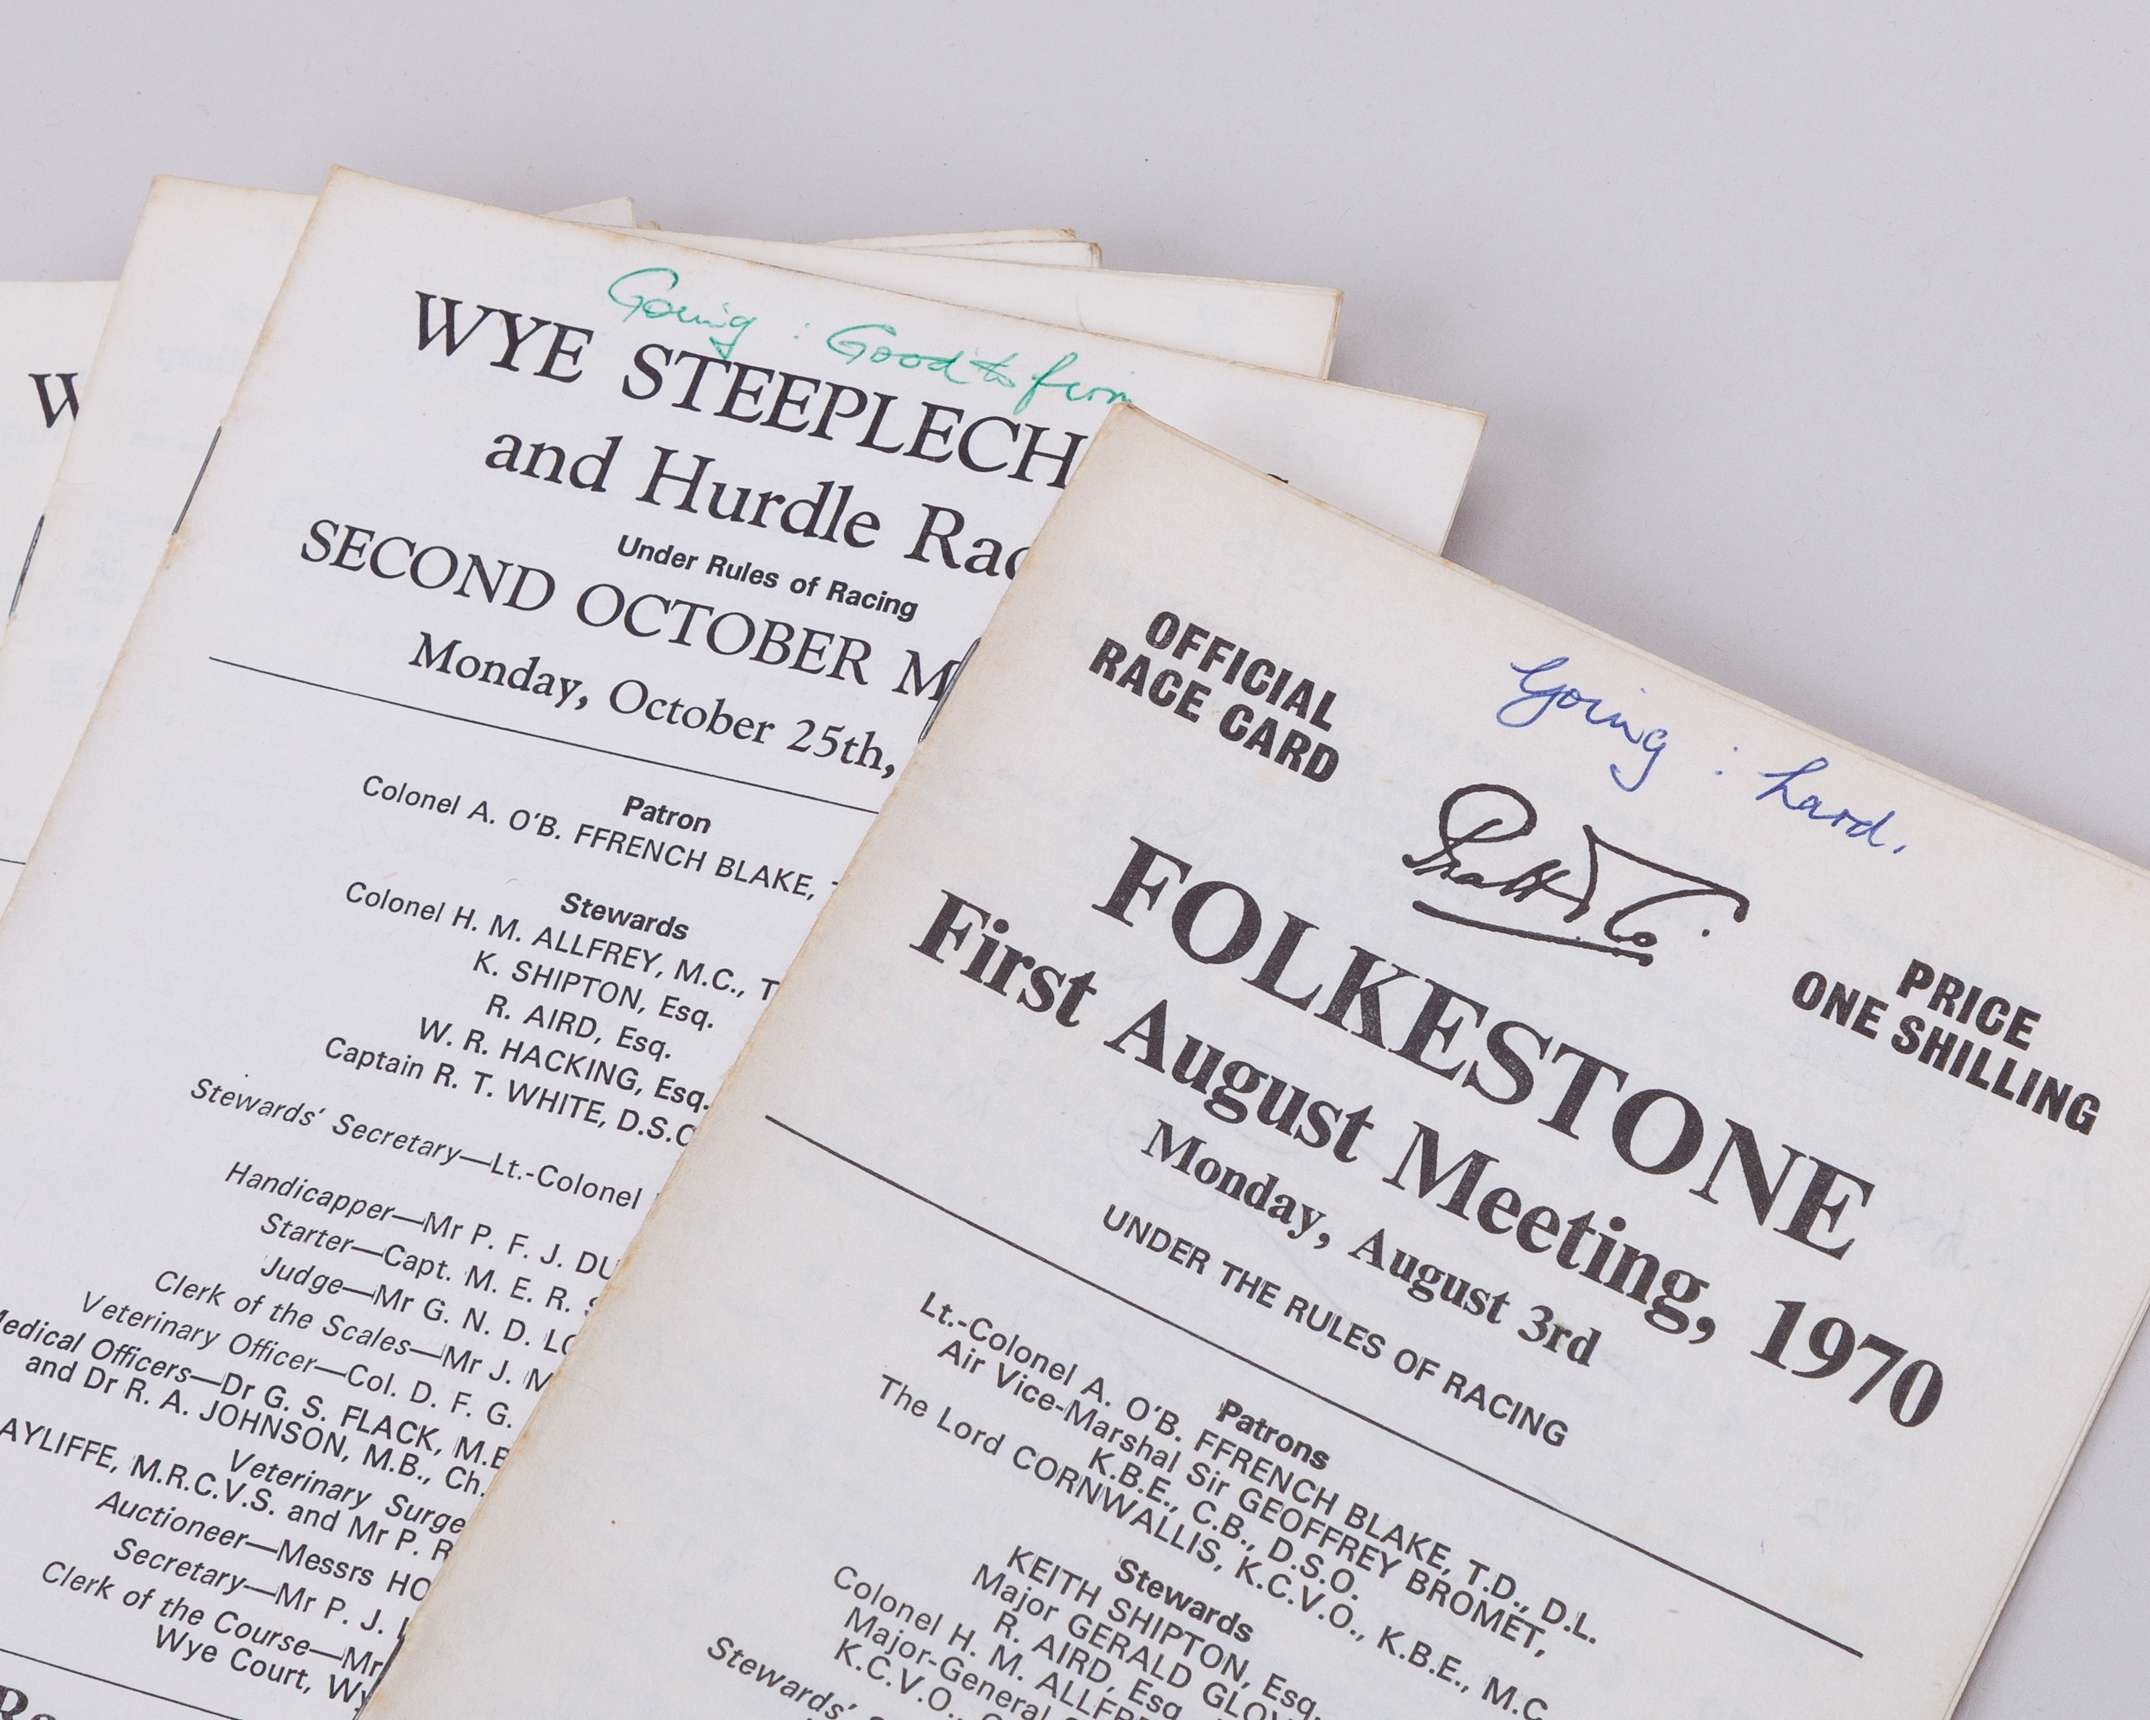 W
Going : Good to firm
WYE STEEPLECH
and Hurdle Rac
Under Rules of Racing
SECOND OCTOBER M
Monday, October 25th,
Patron
Colonel A. O'B. FFRENCH BLAKE,
Stewards
Colonel H. M. ALLFREY, M.C., T
K. SHIPTON, Esq.
R. AIRD, Esq.
W. R. HACKING, Esq.
Captain R. T. WHITE, D.S.O
Stewards' Secretary—Lt.-Colonel
Handicapper—Mr P. F. J. DU
Starter—Capt. M. E. R. S
Judge—Mr G. N. D. LO
Clerk of the Scales—Mr J. M
Veterinary Officer—Col. D. F. G.
Medical Officers—Dr G. S. FLACK, M.B
and Dr R. A. JOHNSON, M.B., Ch.
Veterinary Surge
AYLIFFE, M.R.C.V.S. and Mr P. R
Auctioneer—Messrs HO
Secretary—Mr P. J.
Clerk of the Course—Mr
Wye Court, Wy
OFFICIAL
RACE CARD
Going : hard.
Pratt & Co.
PRICE
ONE SHILLING
FOLKESTONE
First August Meeting, 1970
Monday, August 3rd
UNDER THE RULES OF RACING
Patrons
Lt.-Colonel A. O'B. FFRENCH BLAKE, T.D., D.L.
Air Vice-Marshal Sir GEOFFREY BROMET,
K.B.E., C.B., D.S.O.
The Lord CORNWALLIS, K.C.V.O., K.B.E., M.C.
Stewards
KEITH SHIPTON, Esq.
Major GERALD GLOV
R. AIRD, Esq
Colonel H. M. ALLFR
Major-General
K.C.V.O.,
Stewards'